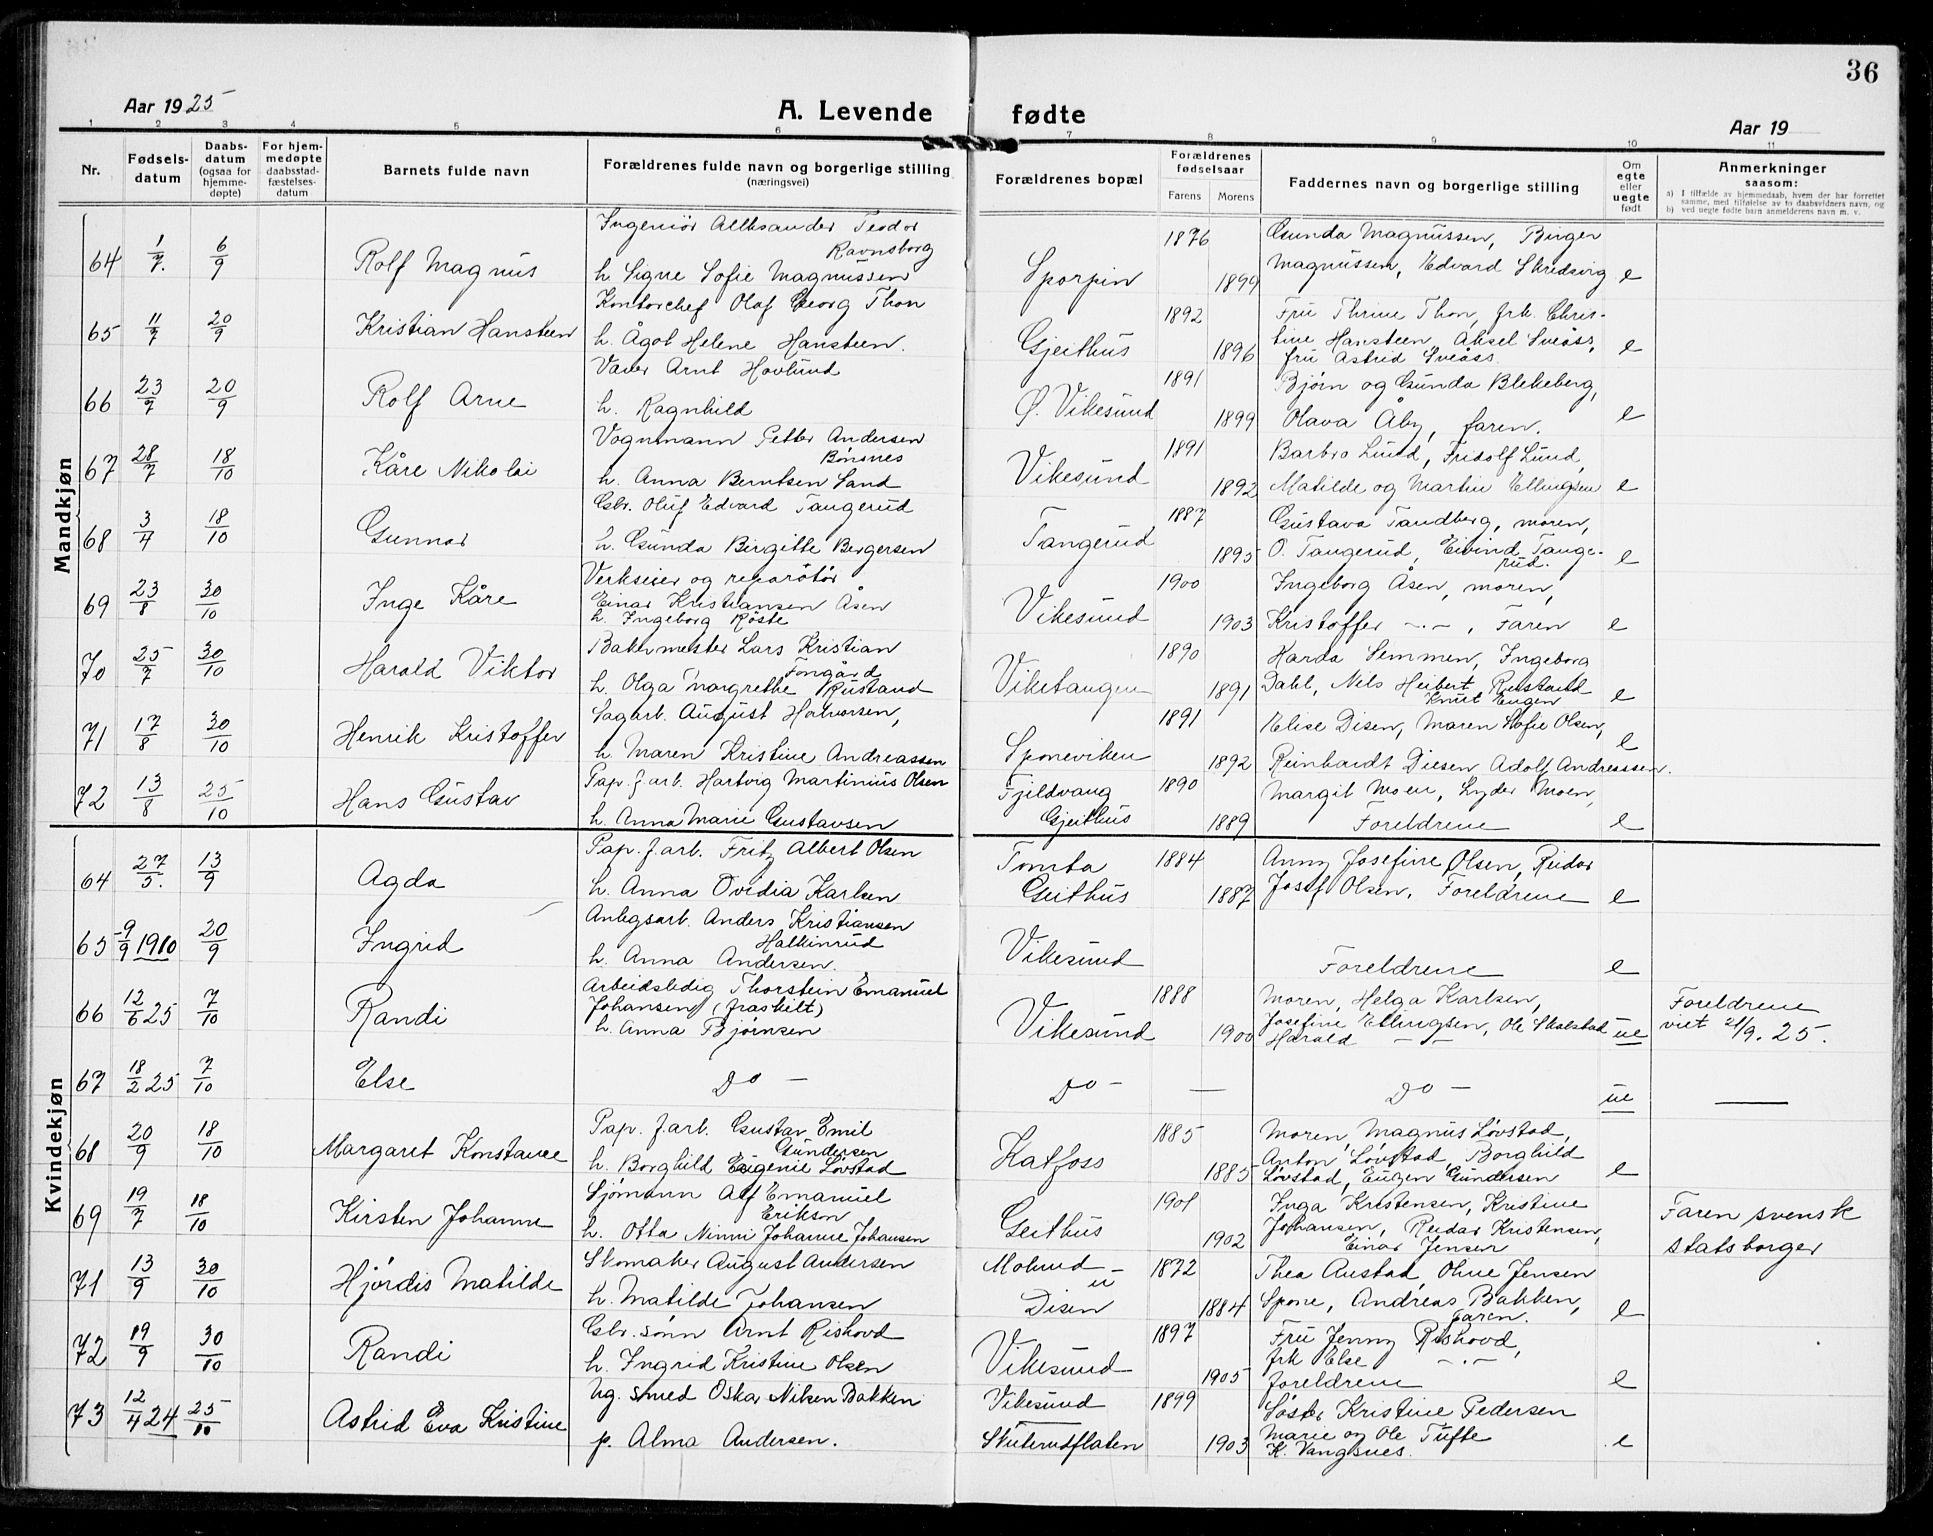 36
Aar 1925
A. Levende fødte
Aar 19
1 2 3 4 5 6 7 8 9 10 11
Nr.
Fødsels-
datum
Daabs-
datum
(ogsaa for
hjemme-
døpte)
For hjem-
medøpte
daabsstad-
fæstelses-
datum
Barnets fulde navn
Forældrenes fulde navn og borgerlige stilling
(næringsvei)
Forældrenes bopæl
Forældrenes
fødselsaar
Farens Morens
Faddernes navn og borgerlige stilling
Om
egte
eller
uegte
født
Anmerkninger
saasom:
a) I tilfælde av hjemmedaab, hvem der har forrettet
samme, med tilføielse av to daabsvidners navn, og
b) ved uegte fødte barn anmelderens navn m. v.
Mandkjøn
64 1/7. 6/9 Rolf Magnus
Ingeniør Alleksander Teodor
Ravnsborg
h. Signe Sofie Magnussen
Sporpin 1876 1899
Gunda Magnussen, Birger
Magnussen, Edvard Skredsvig e
65 11/7 20/9 Kristian Hansteen
Kontorchef Olaf Georg Thon
h. Ågot Helene Hansteen.
Gjeithus 1892 1896
Fru Thrine Thon, frk. Chris-
tine Hansteen, Aksel Sveåss,
fru Astrid Sveåss. e
66 23/7 20/9 Rolf Arne
Vaver Arnt Hovlund
h. Ragnhild
Ø. Vikesund 1891 1899
Bjørn og Gunda Blekeberg,
Olava Åby, faren. e
67 28/7 18/10 Kåre Nikolai
Vognmann Petter Andersen
Bønsnes
h. Anna Berntsen Sand
Vikesund 1891 1892
Barbro Lund, Fridolf Lund,
Matilde og Martin Ellingsen e
68 3/4 18/10 Gunnar
Gbr. Oluf Edvard Tangerud
h. Gunda Birgitte Bergersen
Tangerud 1887 1895
Gustava Tandberg, moren,
O. Tangerud, Eivind Tange-
rud. e
69 23/8 30/10 Inge Kåre
Verkseier og reparatør
Einar Kristiansen Åsen
h. Ingeborg Røste
Vikesund 1900 1903
Ingeborg Åsen, moren,
Kristoffer -·-, Faren e
70 25/7 30/10 Harald Viktor
Bakermester Lars Kristian
Fongård
h. Olga Margrethe Rustand
Viketangen 1890 1891
Harda Semmen, Ingeborg
Dahl, Nels Heibert Rustand
Knut Eugen e
71 17/8 30/10 Henrik Kristoffer
Sagarb. August Halvorsen,
h. Maren Kristine Andreassen
Sponeviken 1891 1892
Elise Disen, Maren Sofie Olsen,
Reinhardt Diesen Adolf Andreassen. e
72 13/8 25/10 Hans Gustav
Pap. f. arb. Hartvig Martinius Olsen
h. Anna Marie Gustavsen
Fjeldvang
Gjeithus 1890 1889
Margit Moen, Lyder Moen,
Foreldrene e
Kvindekjøn
64 27/5. 13/9 Agda
Pap. f. arb. Fritz Albert Olsen
h. Anna Ovedia Karlsen
Tomta
Geithus 1884 1887
Anny Josefine Olsen, Reidar
Josef Olsen, Foreldrene e
65 9/9 1910 20/9 Ingrid
Anlegsarb. Anders Kristiansen
Halkinrud
h. Anna Andersen.
Vikesund
Foreldrene e
66 12/6 25 7/10 Randi
Arbeidsledig Thorstein Emanuel
Johansen (fraskilt)
h. Anna Bjørnsen
Vikesund 1888 1900
Moren, Helga Karlsen,
Josefine Ellingsen, Ole Skalstad
Harald -·- ue
Foreldrene
viet 21/9. 25.
67 18/2 25 7/10 Else
Do -
Do - —
Do - ue —
68 20/9 18/10 Margaret Konstance
Pap. f. arb. Gustav Emil
Gundersen
h. Borghild Eugenie Løvstad
Katfoss 1885 1885
Moren, Magnus Løvstad,
Anton Løvstad, Borghild
Løvstad, Eugen Gundersen e
69 19/7 18/10 Kirsten Johanne
Sjømann Alf Emanuel
Erikson
h. Otta Ninni Johanne Johansen
Geithus 1901 1902
Inga Kristensen, Kristine
Johansen, Reidar Kristensen,
Einar Jensen
Faren svensk
statsborger
71 13/9 30/10 Hjördis Matilde
Skomaker August Andersen
h. Matilde Johansen
Molund -
u
Disen 1872 1884
Thea Austad, Ohne Jensen
Spone, Andreas Bakken,
faren. e
72 19/9 30/10 Randi
Gbr. sønn Arnt Rishovd
h. Ingrid Kristine Olsen
Vikesund 1897 1905
Fru Jenny Rishovd,
frk Else -·-
foreldrene e
73 12/4 24 25/10 Astrid Eva Kristine
Ug. smed Oskar Nilsen Bakken
p. Alma Andersen.
Vikesund
Skuterudflaten 1899 1903
Søster Kristine Pedersen
Marie og Ole Tufte
K. Vangsnes. e